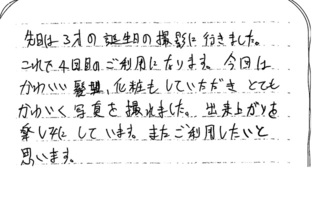 先日は3才の誕生日の撮影に行きました。
これで4回目のご利用になります。今回は
かわいい髪型、化粧もしていただき とても
かわいく写真を撮れました。出来上がりを
楽しみにしています。またご利用したいと
思います。